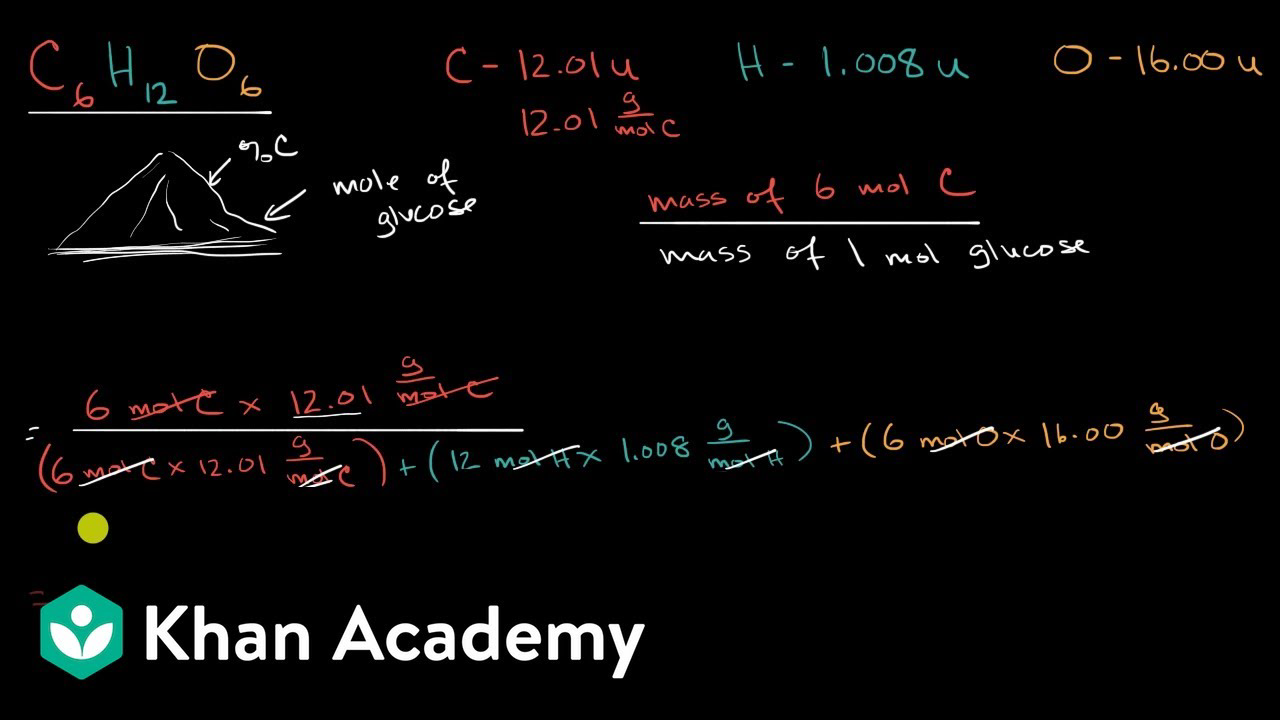 C₆H₁₂O₆
C - 12.01 u
12.01 g/mol C
H - 1.008 u
O - 16.00 u
% C
mole of
glucose
mass of 6 mol C
mass of 1 mol glucose
= 6 mol C × 12.01 g/mol C
(6 mol C × 12.01 g/mol C) + (12 mol H × 1.008 g/mol H) + (6 mol O × 16.00 g/mol O)
=
Khan Academy